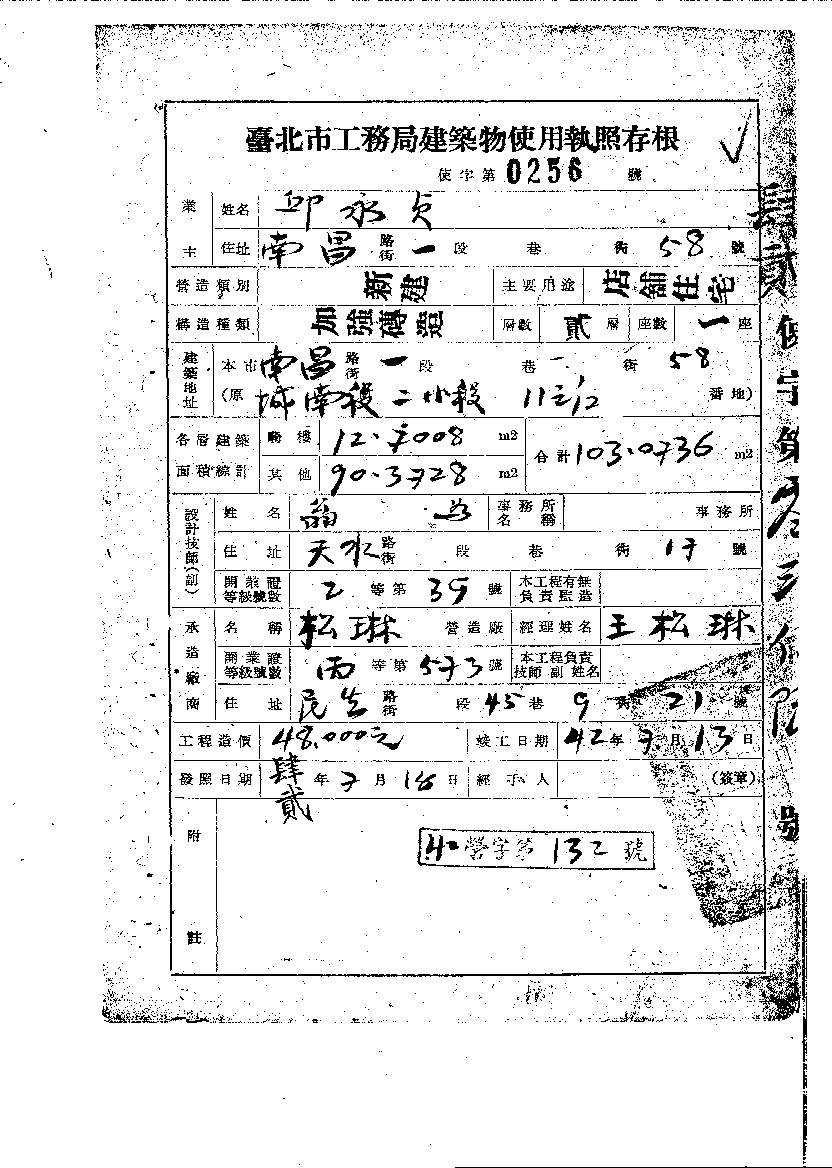 臺北市工務局建築物使用執照存根
使字第0256號
業主 姓名 邱永貞
住址 南昌路街一段 巷 街 58 號
營造類別 新建 主要用途 店舖住宅
構造種類 加強磚造 層數 貳層 座數 一座
建築地址 本市南昌路街一段 巷 街 58
(原 城南段二小段 番地)
各層建築面積總計 騎樓 12.7008 m2 合計 103.0736 m2
其他 90.3728 m2
設計技師(副) 姓名 事務所名稱 事務所
住址 天水路街 段 巷 街 17 號
開業證等級號數 乙等第 39 號 本工程有無負責監造
承造廠商 名稱 松琳 營造廠 經理姓名 王松琳
開業證等級號數 丙等第 573 號 本工程負責技師副姓名
住址 民生路街 段 45 巷 9 街 21 號
工程造價 48,000元 竣工日期 42年7月13日
發照日期 肆貳年7月18日 經手人 (簽章)
附註
42營字第132號
肆貳使字第零
號